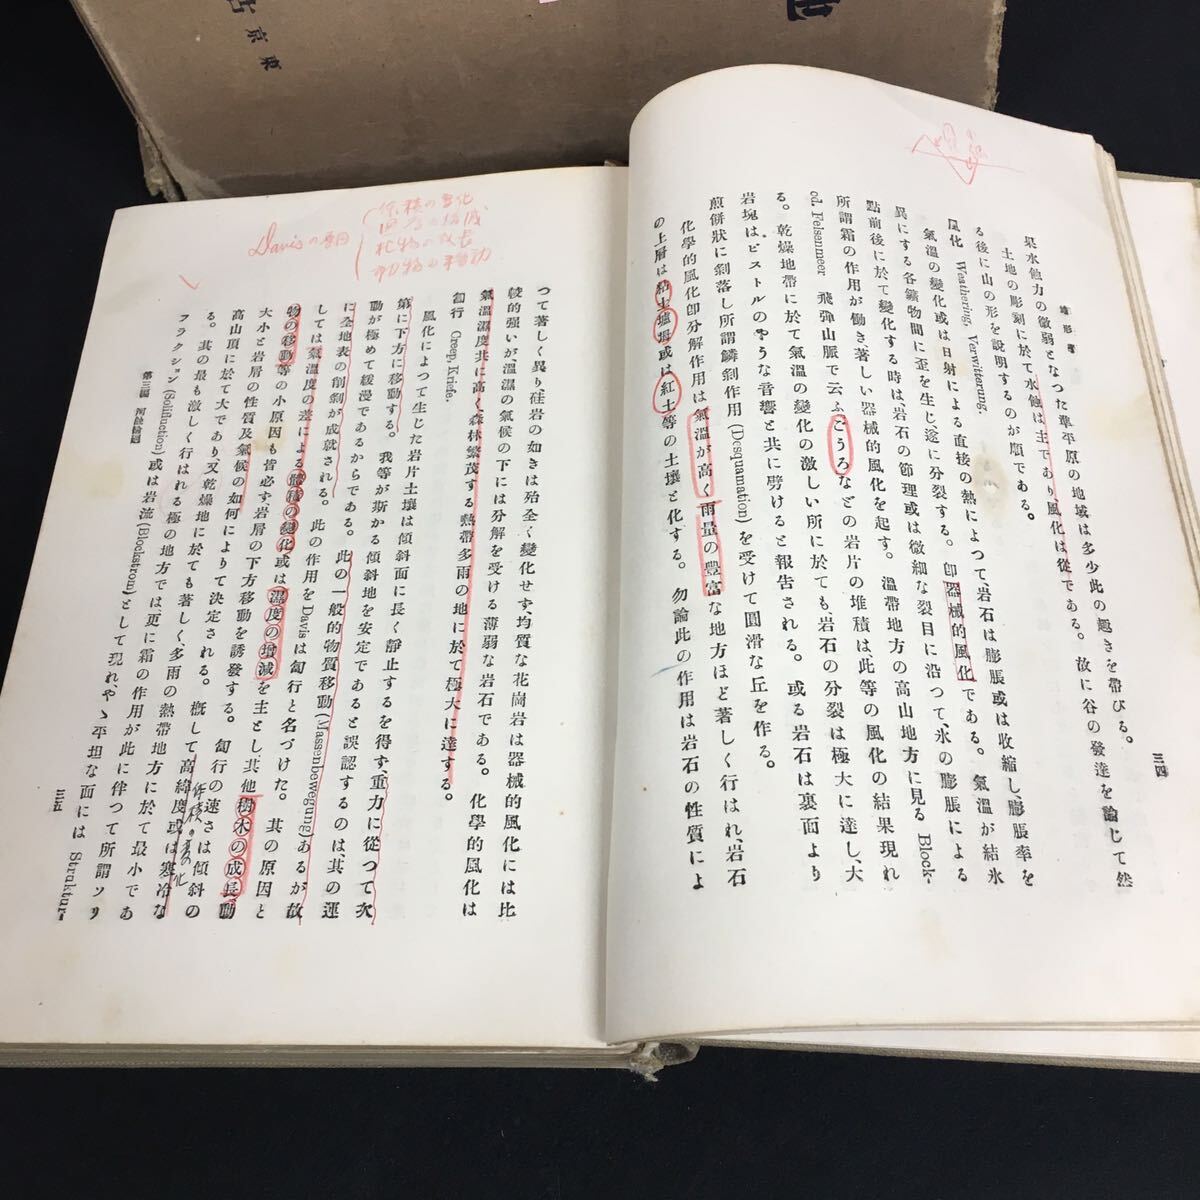 東京
地形學
三四
果水蝕力の微弱となつた準平原の地域は多少此の趣きを帶びる。
土地の彫刻に於て水蝕は主であり、風化は從である。故に谷の發達を論じて然
る後に山の形を說明するのが順である。
風化 Weathering, Verwitterung.
氣溫の變化或は日射による直接の熱によつて、岩石は膨脹或は收縮し膨脹率を
異にする各鑛物間に歪を生じ遂に分裂する。卽器械的風化である。氣溫が結氷
點前後に於て變化する時は、岩石の節理或は微細な裂目に沿つて、氷の膨脹による
所謂霜の作用が働き著しい器械的風化を起す。溫帶地方の高山地方に見る Block-
od. Felsenmeer 飛彈山脈で云ふごうろなどの岩片の堆積は、此等の風化の結果現れ
る。乾燥地帶に於て氣溫の變化の激しい所に於ても、岩石の分裂は極大に達し、大
岩塊はピストルのやうな音響と共に劈けると報告される。或る岩石は裏面より
煎餠狀に剝落し所謂鱗剝作用(Desquamation)を受けて圓滑な丘を作る。
化學的風化卽分解作用は氣溫が高く雨量の豐富な地方ほど著しく行はれ、岩石
の上層は粘土壚坶或は紅土等の土壤と化する。勿論此の作用は岩石の性質によ
Davisの原因
体積の変化
植物の成長
動物の移動
つて著しく異り、硅岩の如きは殆全く變化せず、均質な花崗岩は器械的風化には比
較的强いが、溫濕の氣候の下には分解を受ける薄弱な岩石である。化學的風化は
氣溫濕度共に高く、森林繁茂する熱帶多雨の地に於て極大に達する。
匐行 Creep, Kriefe.
風化によつて生じた岩片土壤は傾斜面に長く靜止するを得ず、重力に從つて次
第に下方に移動する。我等が斯かる傾斜地を安定であると誤認するのは、其の運
動が極めて緩漫であるからである。此の一般的物質移動(Massenbewegung)あるが故
に全地表の削剝が成就される。此の作用をDavisは匐行と名づけた。其の原因と
しては氣溫度の差による體積の變化或は濕度の增減を主とし其他樹木の成長動
物の移動等の小原因も皆必ず、岩層の下方移動を誘發する。匐行の速さは傾斜の
大小と岩層の性質及氣候の如何によりて決定される。槪して高緯度或は寒冷な
高山頂に於て大であり又乾燥地に於ても著しく、多雨の熱帶地方に於て最小であ
る。其の最も激しく行はれる極の地方では更に霜の作用が此に伴つて所謂ソリ
フラクション(Solifluction)或は岩流(Blockstrom)として現れ、やゝ平坦な面には Struktur-
体積の変化
第三編 河蝕輪廻
三五